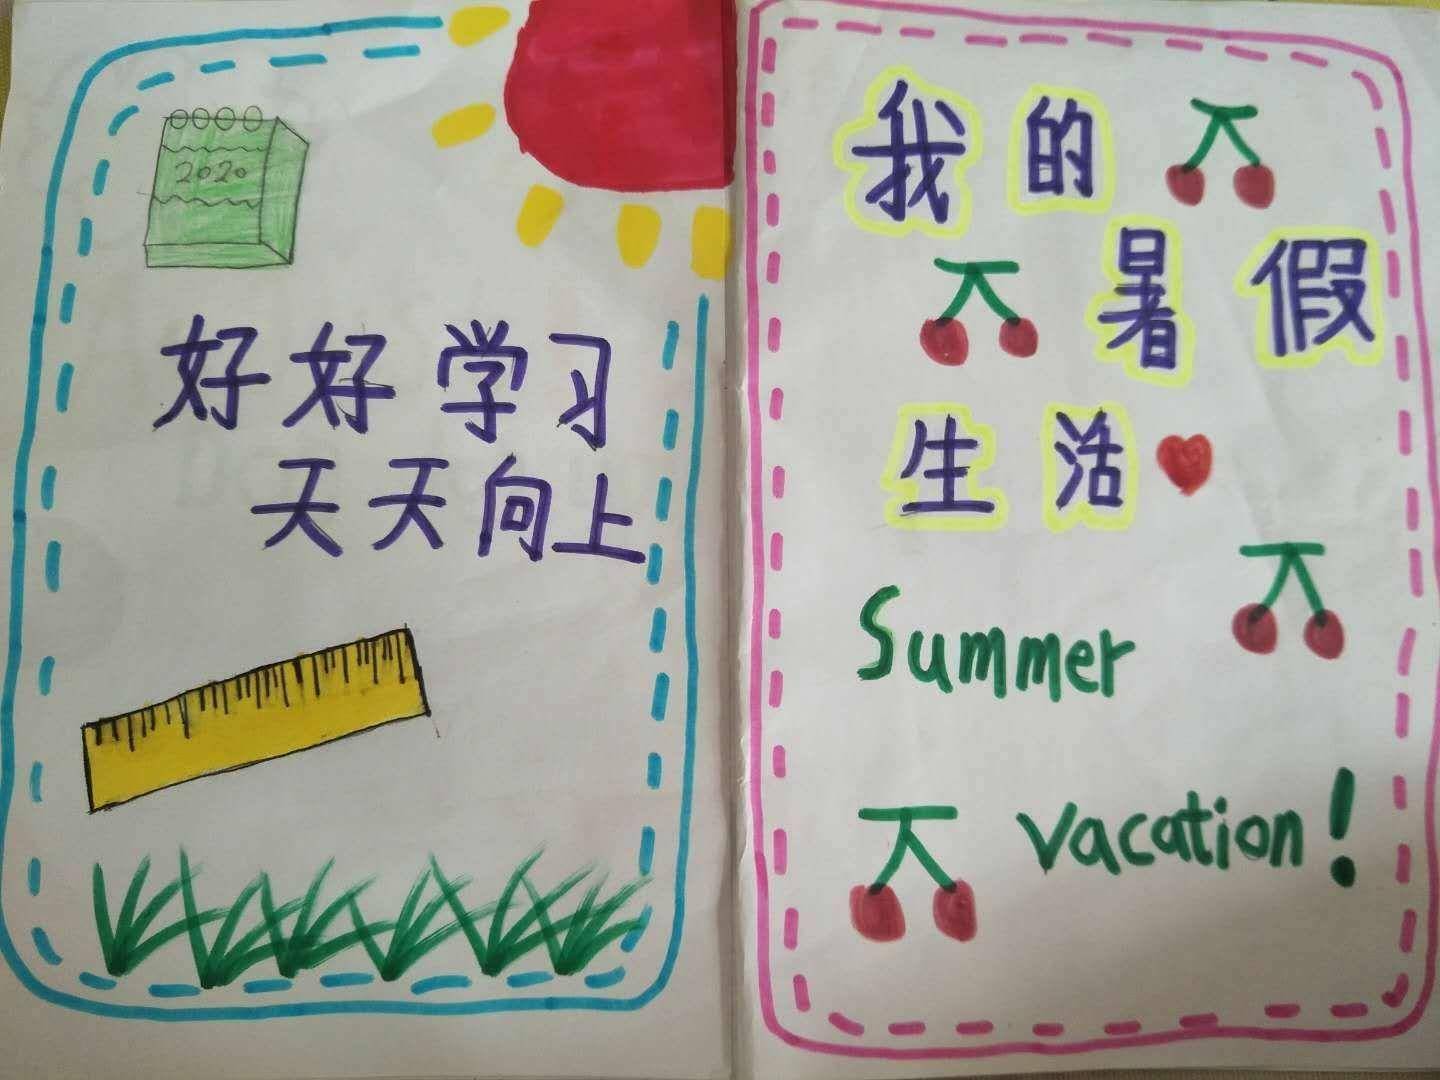 2020
好好学习
天天向上
我的
暑假
生活
Summer
vacation!